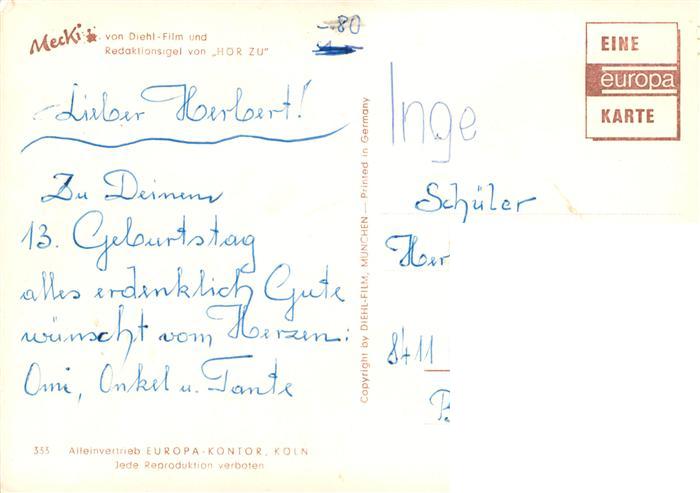 Mecki von Diehl-Film und
Redaktionsigel von „HÖR ZU"
-.80
EINE
europa
KARTE
Lieber Herbert!
Zu Deinem
13. Geburtstag
alles erdenklich Gute
wünscht vom Herzen:
Omi, Onkel u. Tante
Copyright by DIEHL-FILM, MÜNCHEN — Printed in Germany
Inge
Schüler
Her
8411
353 Alleinvertrieb EUROPA-KONTOR, KÖLN
Jede Reproduktion verboten